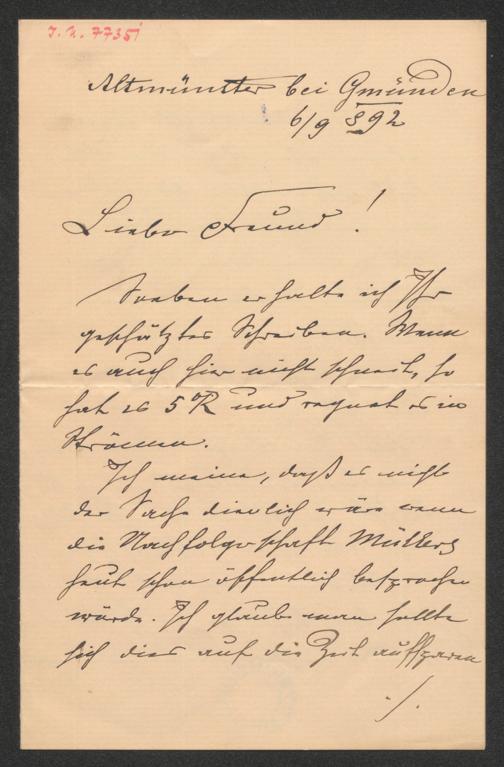 I. N. 77351
Altmünster bei Gmünden
6/9 892
Lieber Freund!
Soeben erhalte ich Ihr
geschätztes Schreiben. Wenn
es auch hier nicht schneit, so
hat es 5°R und regnet es in
Strömen.
Ich meine, daß es nicht
der Sache dienlich wäre wenn
die Nachfolgerschaft Müllers
heut schon öffentlich besprochen
würde. Ich glaube man sollte
sich dies auf die Zeit aufsparen
./.